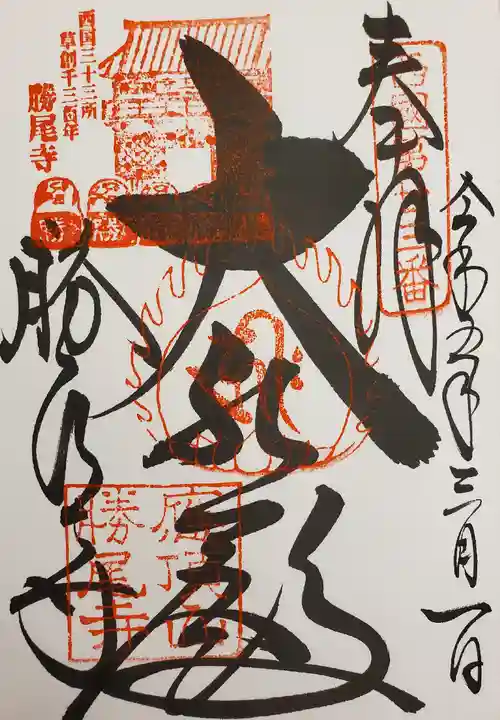 令和五年三月一日
奉拝
西国第二十三番
大悲殿
西国三十三所
草創千三百年
勝尾寺
勝尾寺
應頂山
勝尾寺